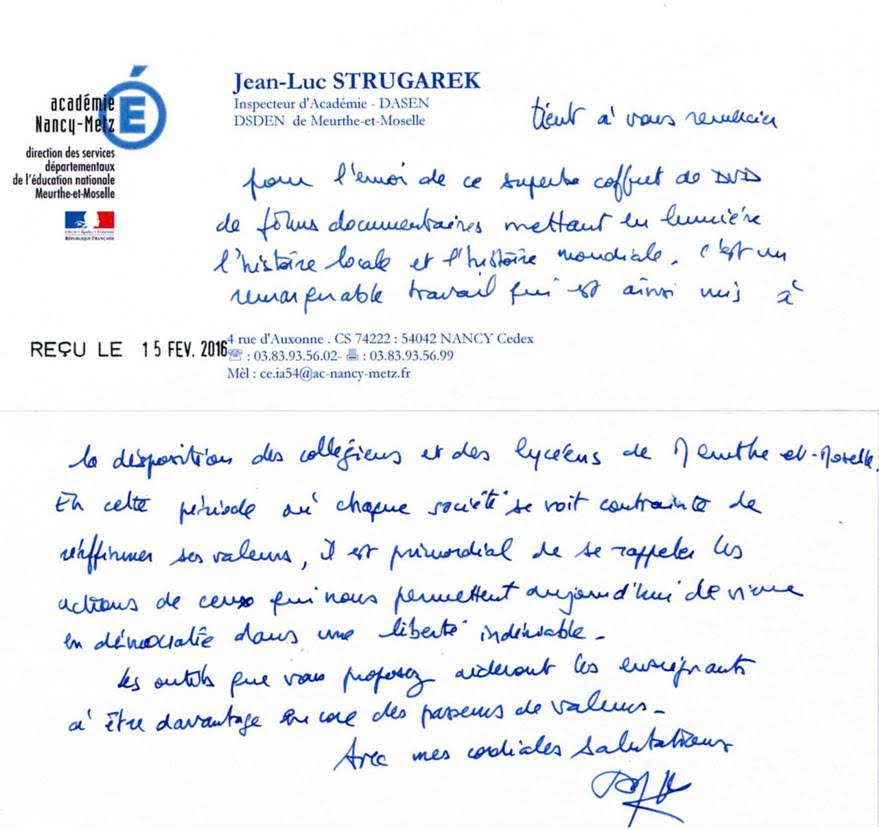 académie
Nancy-Metz
É
direction des services
départementaux
de l'éducation nationale
Meurthe-et-Moselle
Liberté • Égalité • Fraternité
RÉPUBLIQUE FRANÇAISE
Jean-Luc STRUGAREK
Inspecteur d'Académie - DASEN
DSDEN de Meurthe-et-Moselle
tient à vous remercier
pour l'envoi de ce superbe coffret de DVD
de films documentaires mettant en lumière
l'histoire locale et l'histoire mondiale. C'est un
remarquable travail qui est ainsi mis à
REÇU LE 15 FEV. 2016
4 rue d'Auxonne . CS 74222 : 54042 NANCY Cedex
☏ : 03.83.93.56.02- 🖷 : 03.83.93.56.99
Mèl : ce.ia54@ac-nancy-metz.fr
la disposition des collégiens et des lycéens de Meurthe-et-Moselle.
En cette période où chaque société se voit contrainte de
réaffirmer ses valeurs, il est primordial de se rappeler les
actions de ceux qui nous permettent aujourd'hui de vivre
en démocratie dans une liberté indéniable.
Les outils que vous proposez aideront les enseignants
à être davantage encore des passeurs de valeurs.
Avec mes cordiales salutations